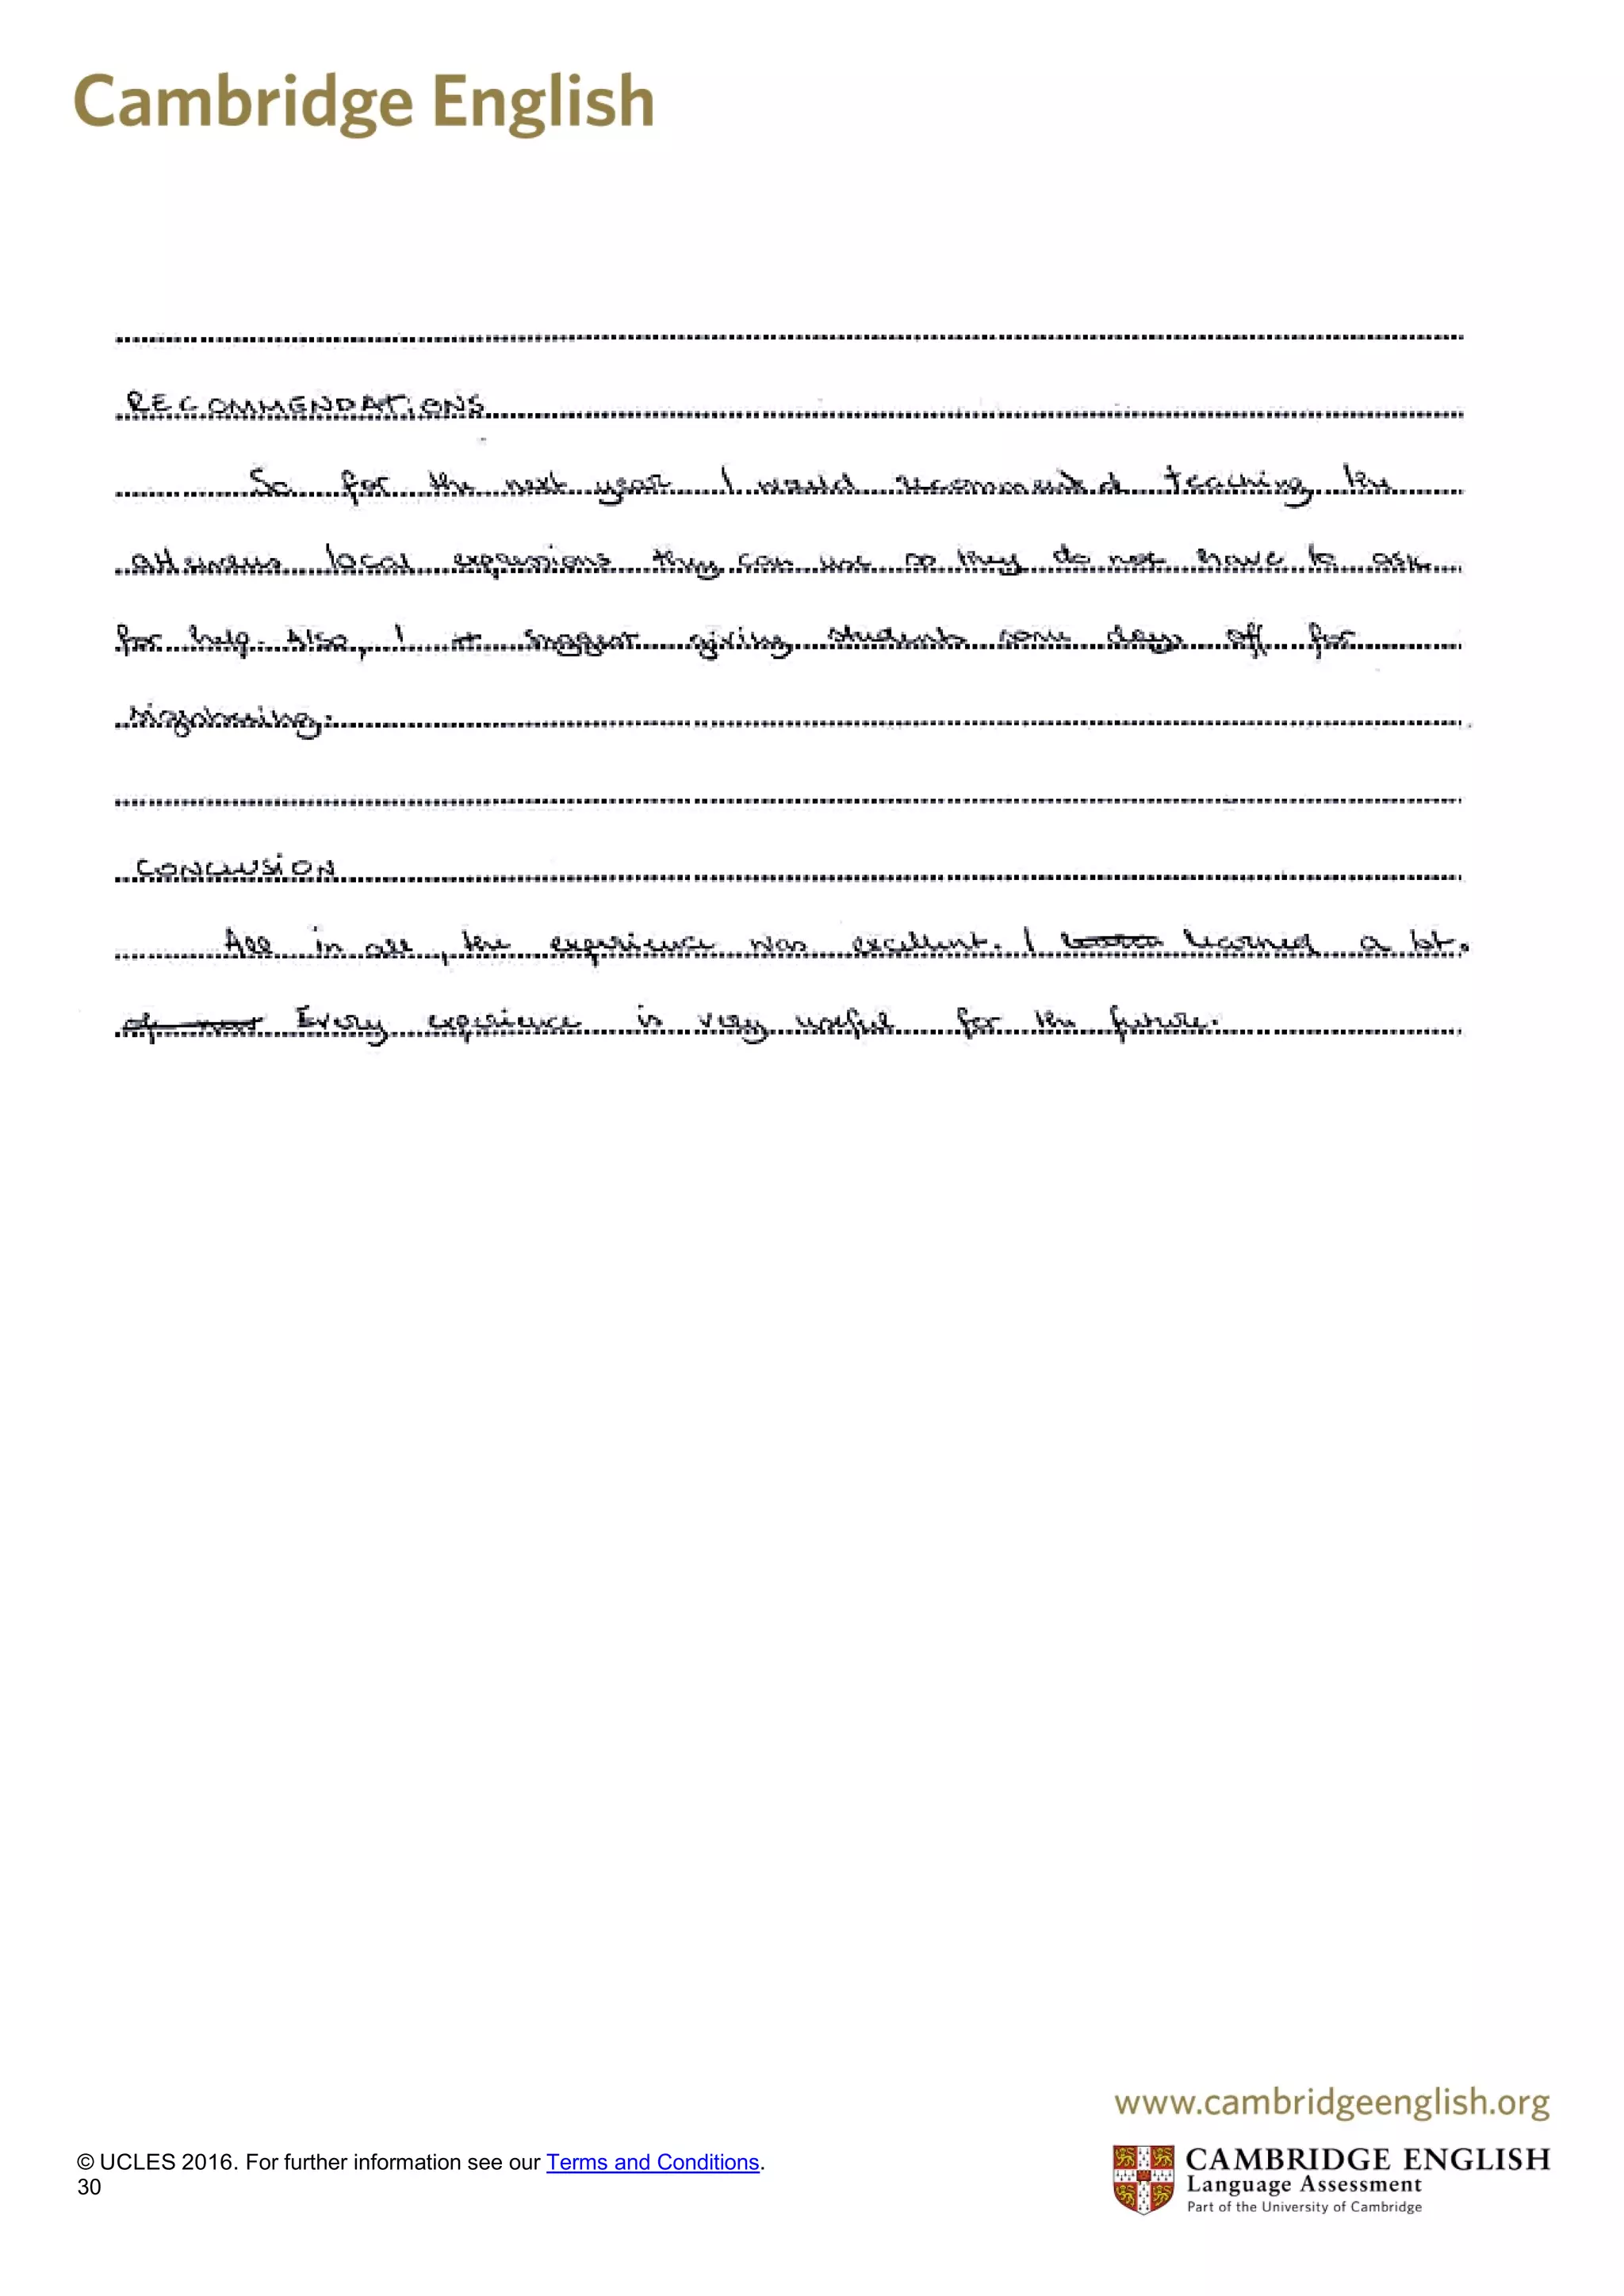 Cambridge English
RECOMMENDATIONS
So for the next year I would recommend teaching the
att local expressions they can use so they do not have to ask
for help. Also, I suggest giving students some days off for
CONCLUSION
All in all, the experience was excellent. I learned a lot.
of not Every experience is very useful for the future.
www.cambridgeenglish.org
© UCLES 2016. For further information see our Terms and Conditions.
30
CAMBRIDGE ENGLISH
Language Assessment
Part of the University of Cambridge